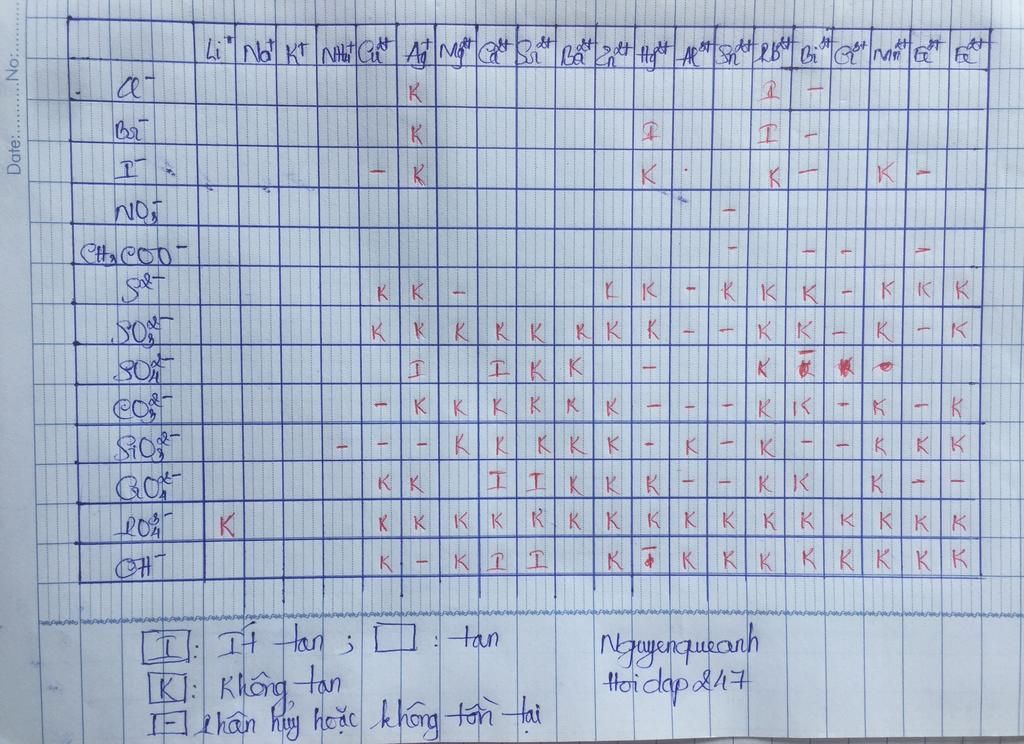 Date: No:
Li⁺ Na⁺ K⁺ NH₄⁺ Cu²⁺ Ag⁺ Mg²⁺ Ca²⁺ Sr²⁺ Ba²⁺ Zn²⁺ Hg²⁺ Al³⁺ Sn²⁺ Pb²⁺ Bi³⁺ Cr³⁺ Mn²⁺ Fe³⁺ Fe²⁺
Cl⁻ K I -
Br⁻ K I I -
I⁻ - K K K - K -
NO₃⁻ -
CH₃COO⁻ - - - -
S²⁻ K K - K K - K K K - K K K
SO₃²⁻ K K K K K K K K - - K K - K - K
SO₄²⁻ I I K K - K - -
CO₃²⁻ - K K K K K K - - - K K - K - K
SiO₃²⁻ - - - K K K K K - K - K - - K K K
CrO₄²⁻ K K I I K K K - - K K K - -
PO₄³⁻ K K K K K K K K K K K K K K K K K
OH⁻ K - K I I K I K K K K K K K K
I : Ít tan ; : tan
K : Không tan
- phân hủy hoặc không tồn tại
Nguyenqueanh
Hoi dap 247